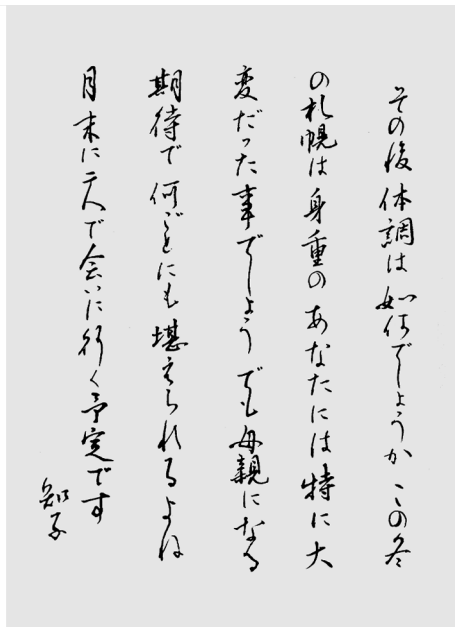 その後体調は如何でしょうかこの冬
の札幌は身重のあなたには特に大
変だった事でしょうでも母親になる
期待で何ごとにも堪えられるよね
月末に二人で会いに行く予定です
知子